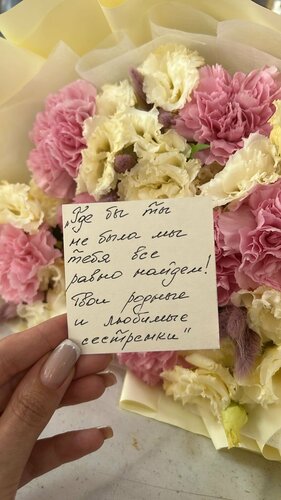 „Где бы ты
не была мы
тебя все
равно найдем!
Твои родные
и любимые
сестренки"